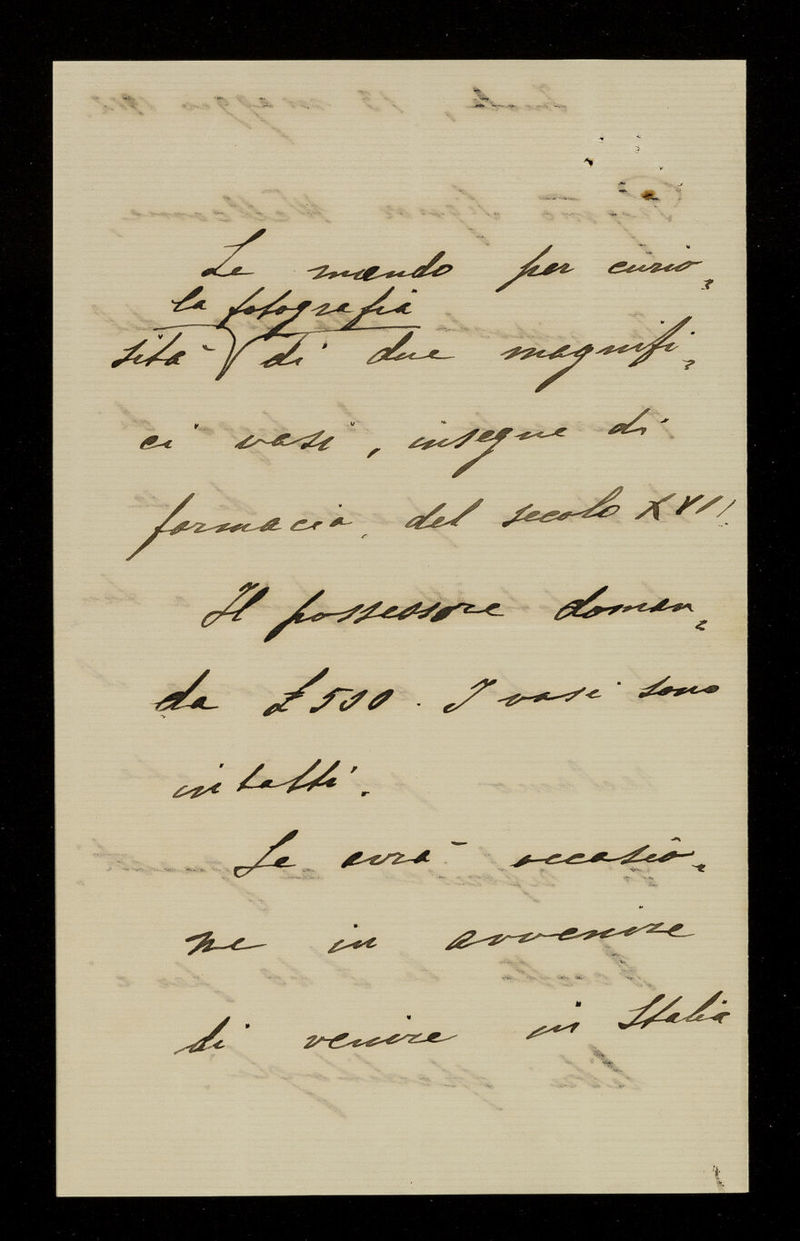 Le mando per curio=
la fotografia
sità di due magnifi=
ci vasi, insegne di
farmacia, del secolo XVII.
Il possessore doman=
da £ 500. I vasi sono
intatti.
Se avrà occasio=
ne in avvenire
di venire in Italia